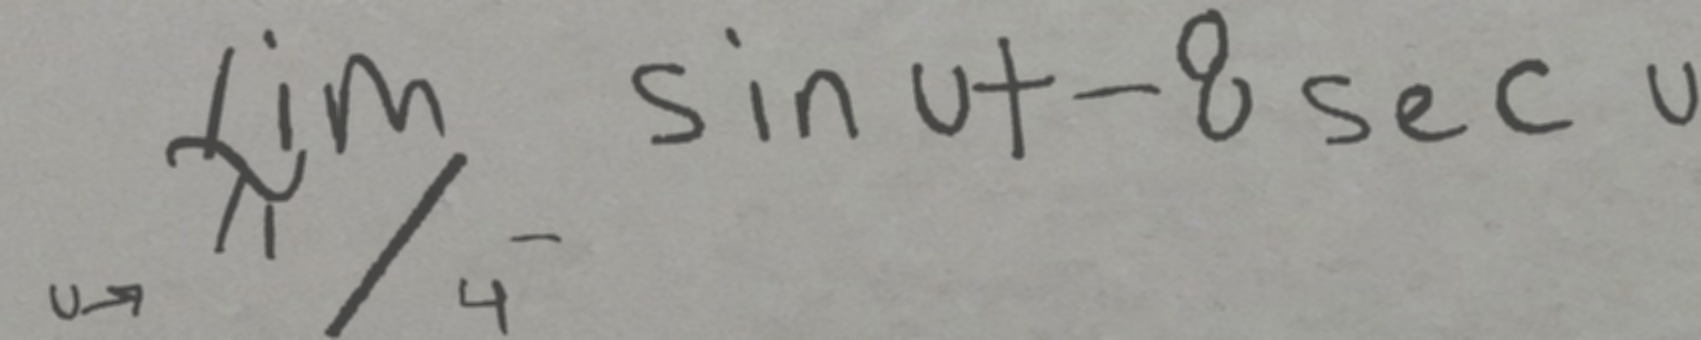 lim_{u→π/4^-} sin u + -8 sec u